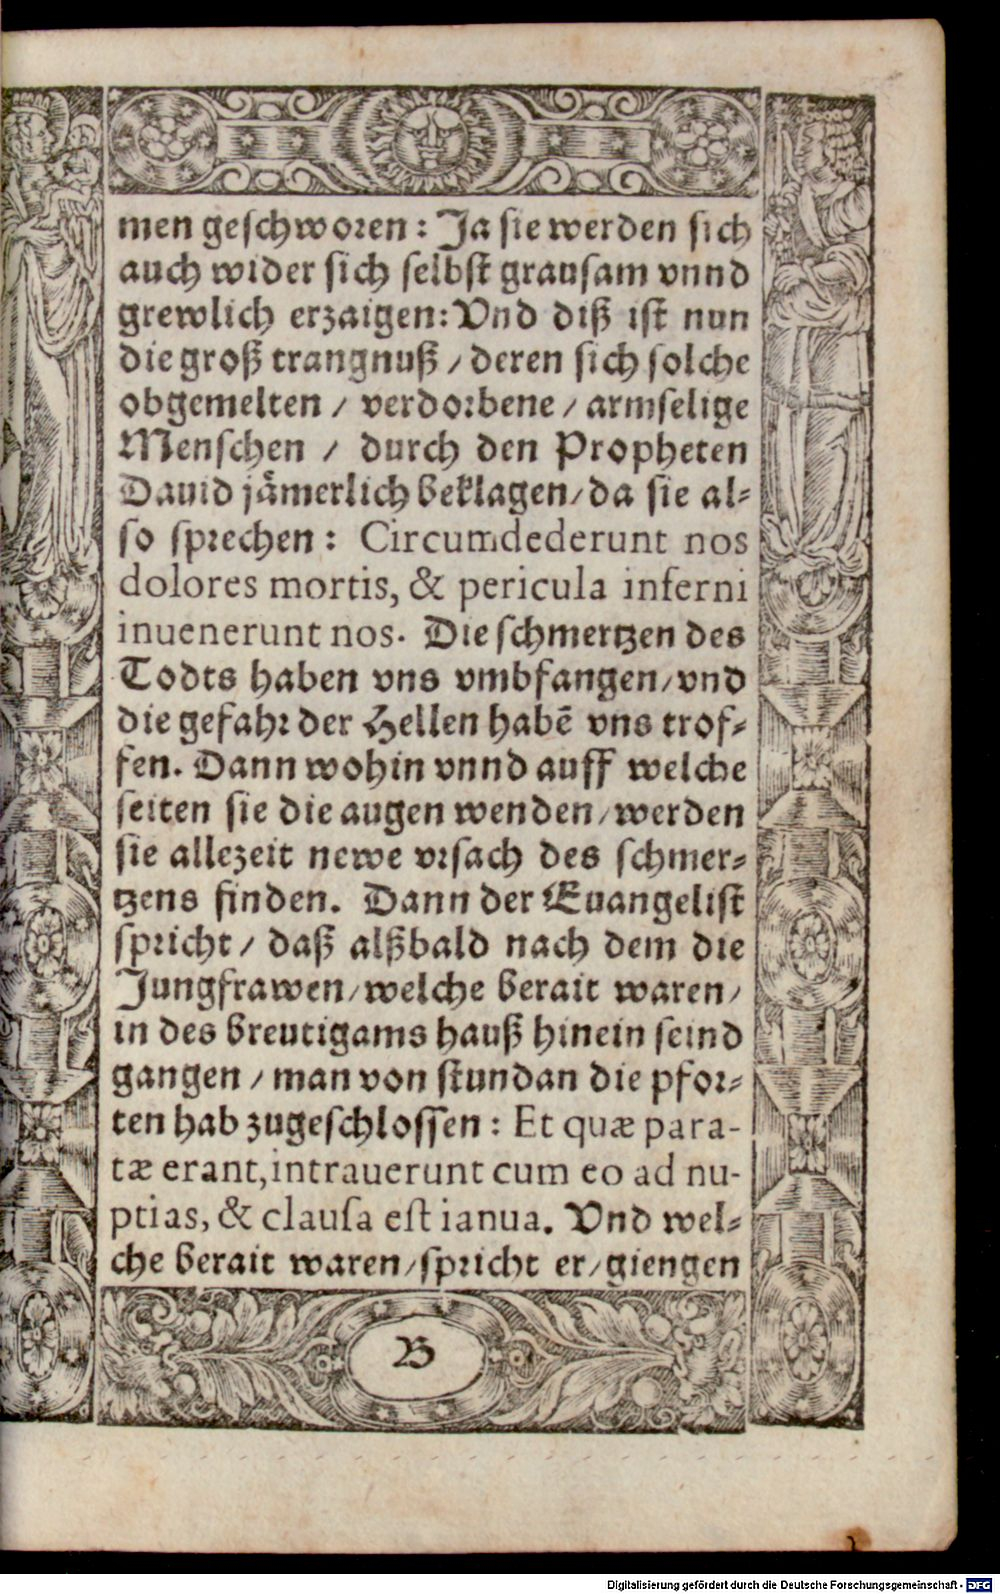 men geschworen: Ja sie werden sich
auch wider sich selbst grausam vnnd
grewlich erzaigen: Vnd diß ist nun
die groß trangnuß / deren sich solche
obgemelten / verdorbene / armselige
Menschen / durch den Propheten
Dauid jämerlich beklagen / da sie al-
so sprechen: Circumdederunt nos
dolores mortis, & pericula inferni
inuenerunt nos. Die schmertzen des
Todts haben vns vmbfangen / vnd
die gefahr der Hellen habē vns trof-
fen. Dann wohin vnnd auff welche
seiten sie die augen wenden / werden
sie allezeit newe vrsach des schmer-
tzens finden. Dann der Euangelist
spricht / daß alßbald nach dem die
Jungfrawen / welche berait waren /
in des breutigams hauß hinein seind
gangen / man von stundan die pfor-
ten hab zugeschlossen: Et quæ para-
tæ erant, intrauerunt cum eo ad nu-
ptias, & clausa est ianua. Vnd wel-
che berait waren / spricht er / giengen
B
Digitalisierung gefördert durch die Deutsche Forschungsgemeinschaft - DFG